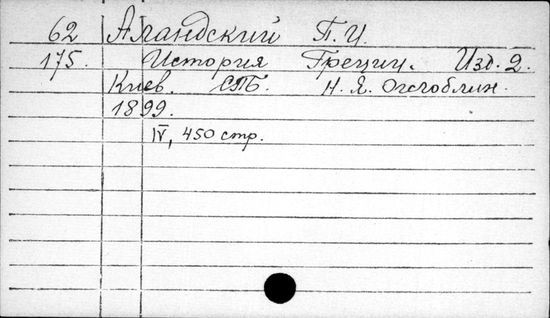 62 Аландский П. И.
175. История Греции. Изд. 2.
Киев. СТБ. Н. Я. Оглоблин.
1899.
IV, 450 стр.